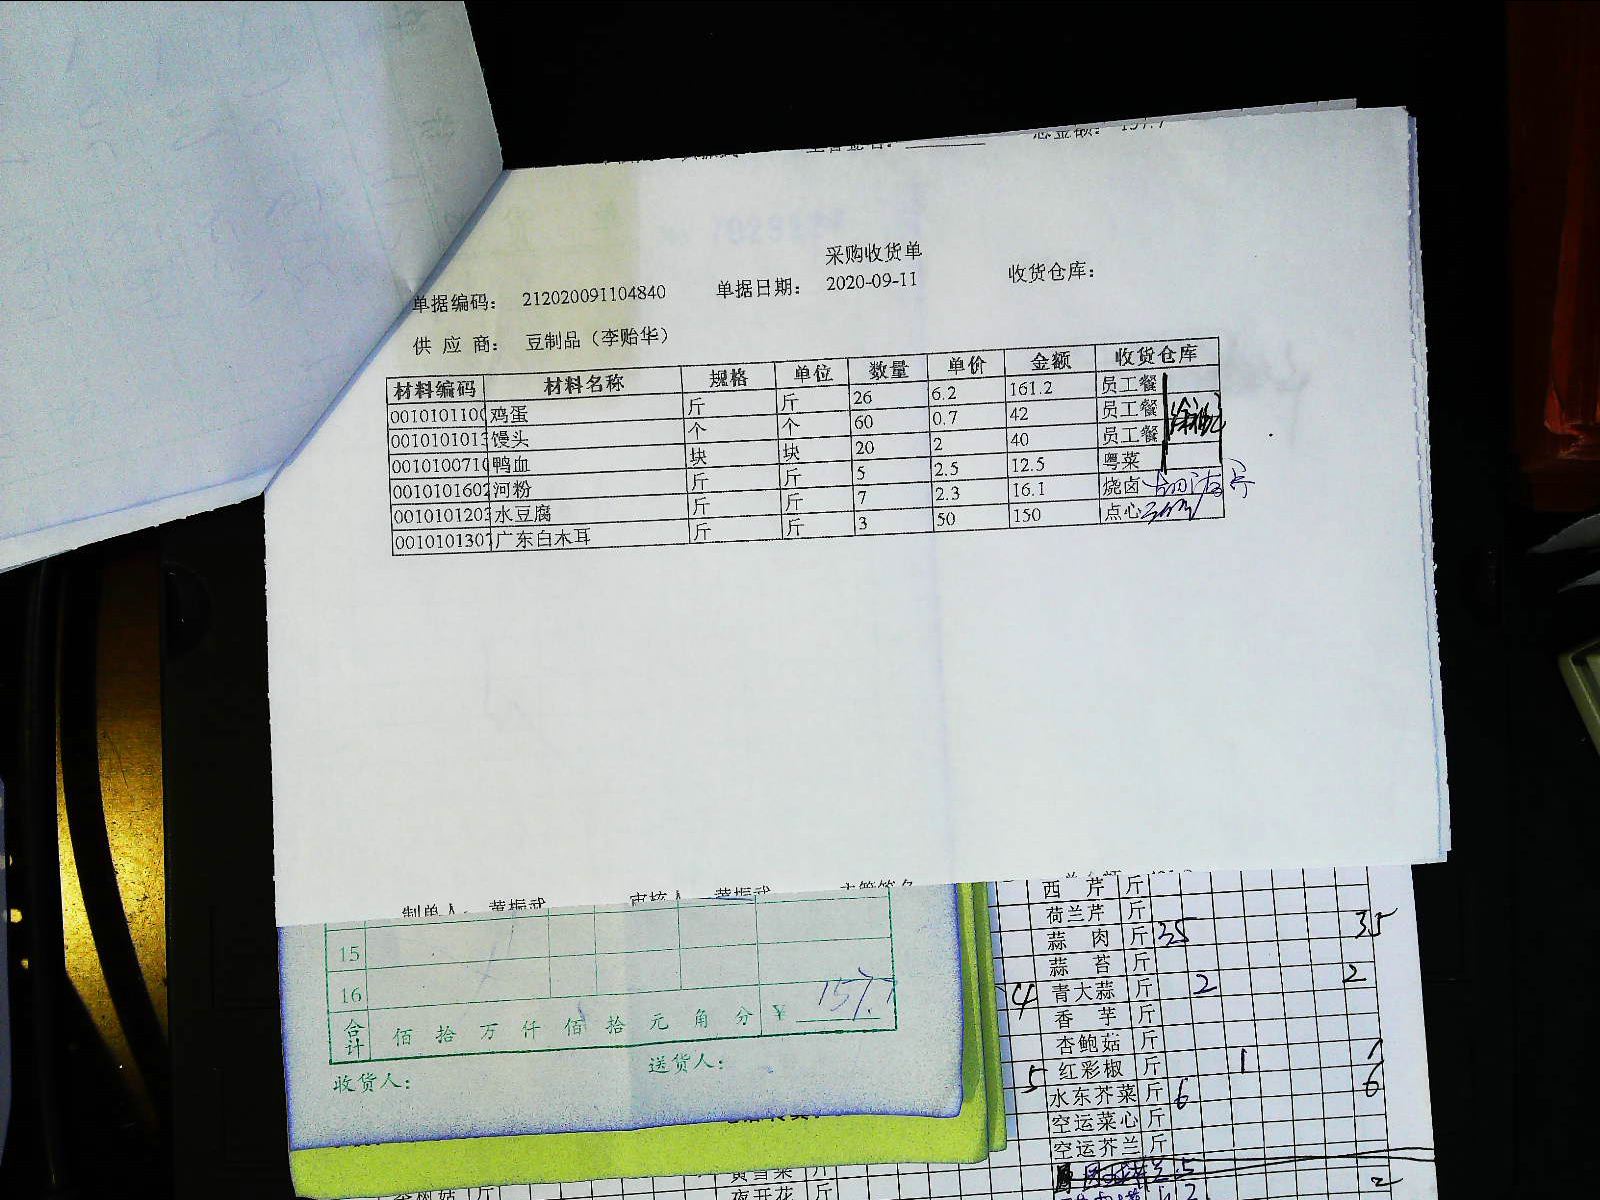 总金额: 157.7
采购收货单
单据编码: 212020091104840 单据日期: 2020-09-11 收货仓库:
供 应 商: 豆制品（李贻华）
材料编码 材料名称 规格 单位 数量 单价 金额 收货仓库
0010101100 鸡蛋 斤 斤 26 6.2 161.2 员工餐
001010101 馒头 个 个 60 0.7 42 员工餐
001010071 鸭血 块 块 20 2 40 员工餐
001010160 河粉 斤 斤 5 2.5 12.5 粤菜
001010120 水豆腐 斤 斤 7 2.3 16.1 烧卤
001010130 广东白木耳 斤 斤 3 50 150 点心
制单人: 黄振武 审核人 黄振武 主管签名
15
16
合计 佰 拾 万 仟 佰 拾 元 角 分 ¥ 157.7
收货人: 送货人:
西 芹 斤
荷兰芹 斤
蒜 肉 斤 35 35
蒜 苔 斤
4 青大蒜 斤 2 2
香 芋 斤
杏鲍菇 斤
5 红彩椒 斤 1 1
水东芥菜 斤 6 6
空运菜心 斤
空运芥兰 斤
2
夜开花 斤